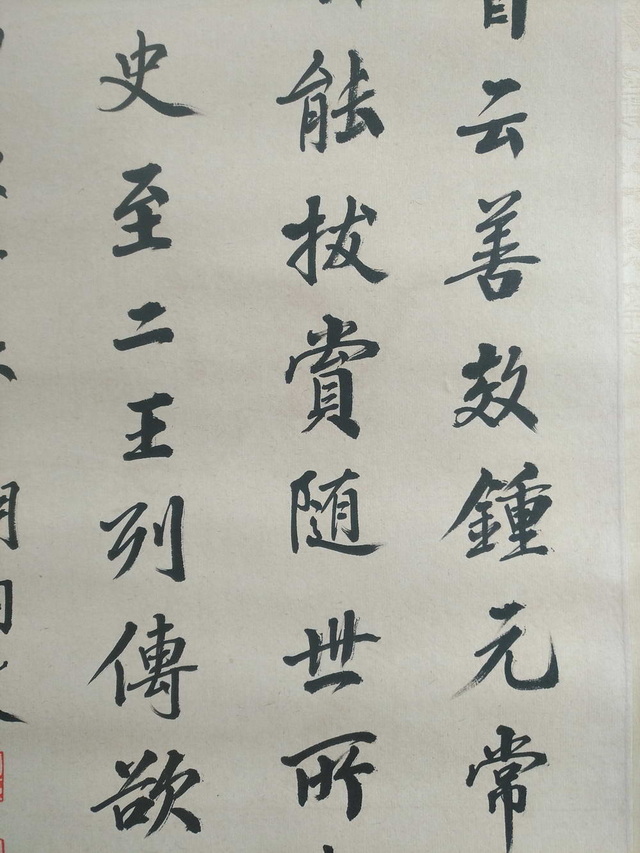 自云善效鍾元常
能拔賞隨世所
史至二王列傳欲